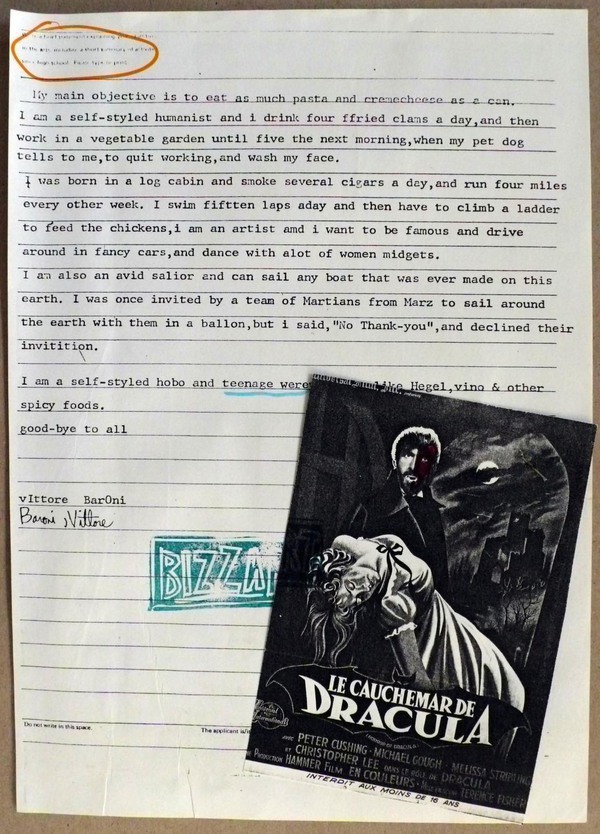 in the arts. Include a short summary of activities
since high school. Please type or print.
My main objective is to eat as much pasta and cremecheese as a can.
I am a self-styled humanist and i drink four ffried clams a day,and then
work in a vegetable garden until five the next morning,when my pet dog
tells to me,to quit working,and wash my face.
I was born in a log cabin and smoke several cigars a day,and run four miles
every other week. I swim fiftten laps aday and then have to climb a ladder
to feed the chickens,i am an artist amd i want to be famous and drive
around in fancy cars,and dance with alot of women midgets.
I am also an avid salior and can sail any boat that was ever made on this
earth. I was once invited by a team of Martians from Marz to sail around
the earth with them in a ballon,but i said,"No Thank-you",and declined their
invitition.
I am a self-styled hobo and teenage were like Hegel,vino & other
spicy foods.
good-bye to all
vIttore BarOni
Baroni Vittore
BIZZA
Do not write in this space.
The applicant is
LE CAUCHEMAR DE
DRACULA
(HORROR OF DRACULA)
AVEC PETER CUSHING · MICHAEL GOUGH · MELISSA STRIBLING
ET CHRISTOPHER LEE DANS LE RÔLE DE DRACULA
PRODUCTION HAMMER FILM. EN COULEURS. TERENCE FISHER
INTERDIT AUX MOINS DE 16 ANS